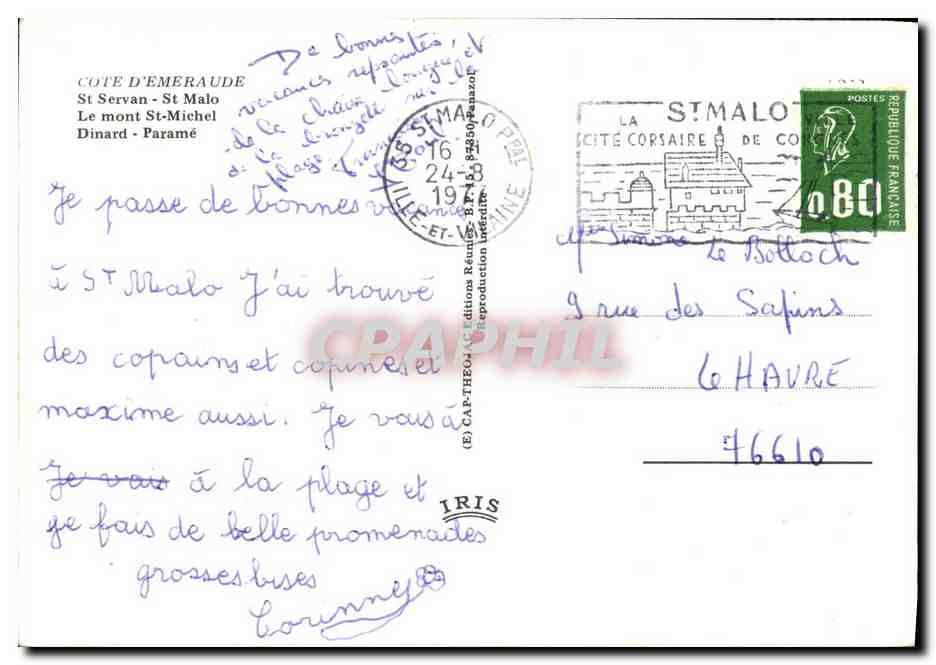 COTE D'EMERAUDE
St Servan - St Malo
Le mont St-Michel
Dinard - Paramé
De bonnes
vacances reposantes,
de la chaise longue et
de la bronzette sur la
plage
Je passe de bonnes vacances
à ST Malo J'ai trouvé
des copains et copines et
maxime aussi. Je vais à
Je vais à la plage et
je fais de belle promenades
grosses bises
Corinny
(E) CAP-THEOJAC Editions Réunies - B.P. 15 - 87350 Panazol
Reproduction interdite
IRIS
35 ST MALO PPAL
16 H
24-8
ILLE-ET-VILAINE
ST MALO
LA
CITÉ CORSAIRE DE
POSTES
REPUBLIQUE FRANÇAISE
0.80
Simone Le Bolloch
9 rue des Sapins
Le HAVRE
76610
CPAPHIL